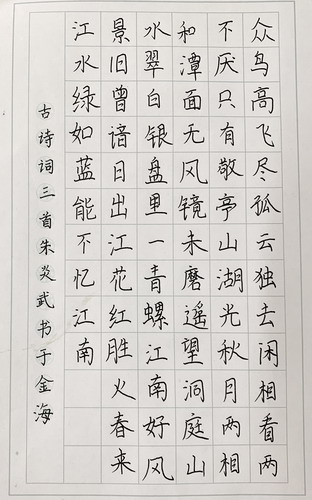 众鸟高飞尽孤云独去闲相看两
不厌只有敬亭山湖光秋月两相
和潭面无风镜未磨遥望洞庭山
水翠白银盘里一青螺江南好风
景旧曾谙日出江花红胜火春来
江水绿如蓝能不忆江南
古诗词三首朱炎武书于金海